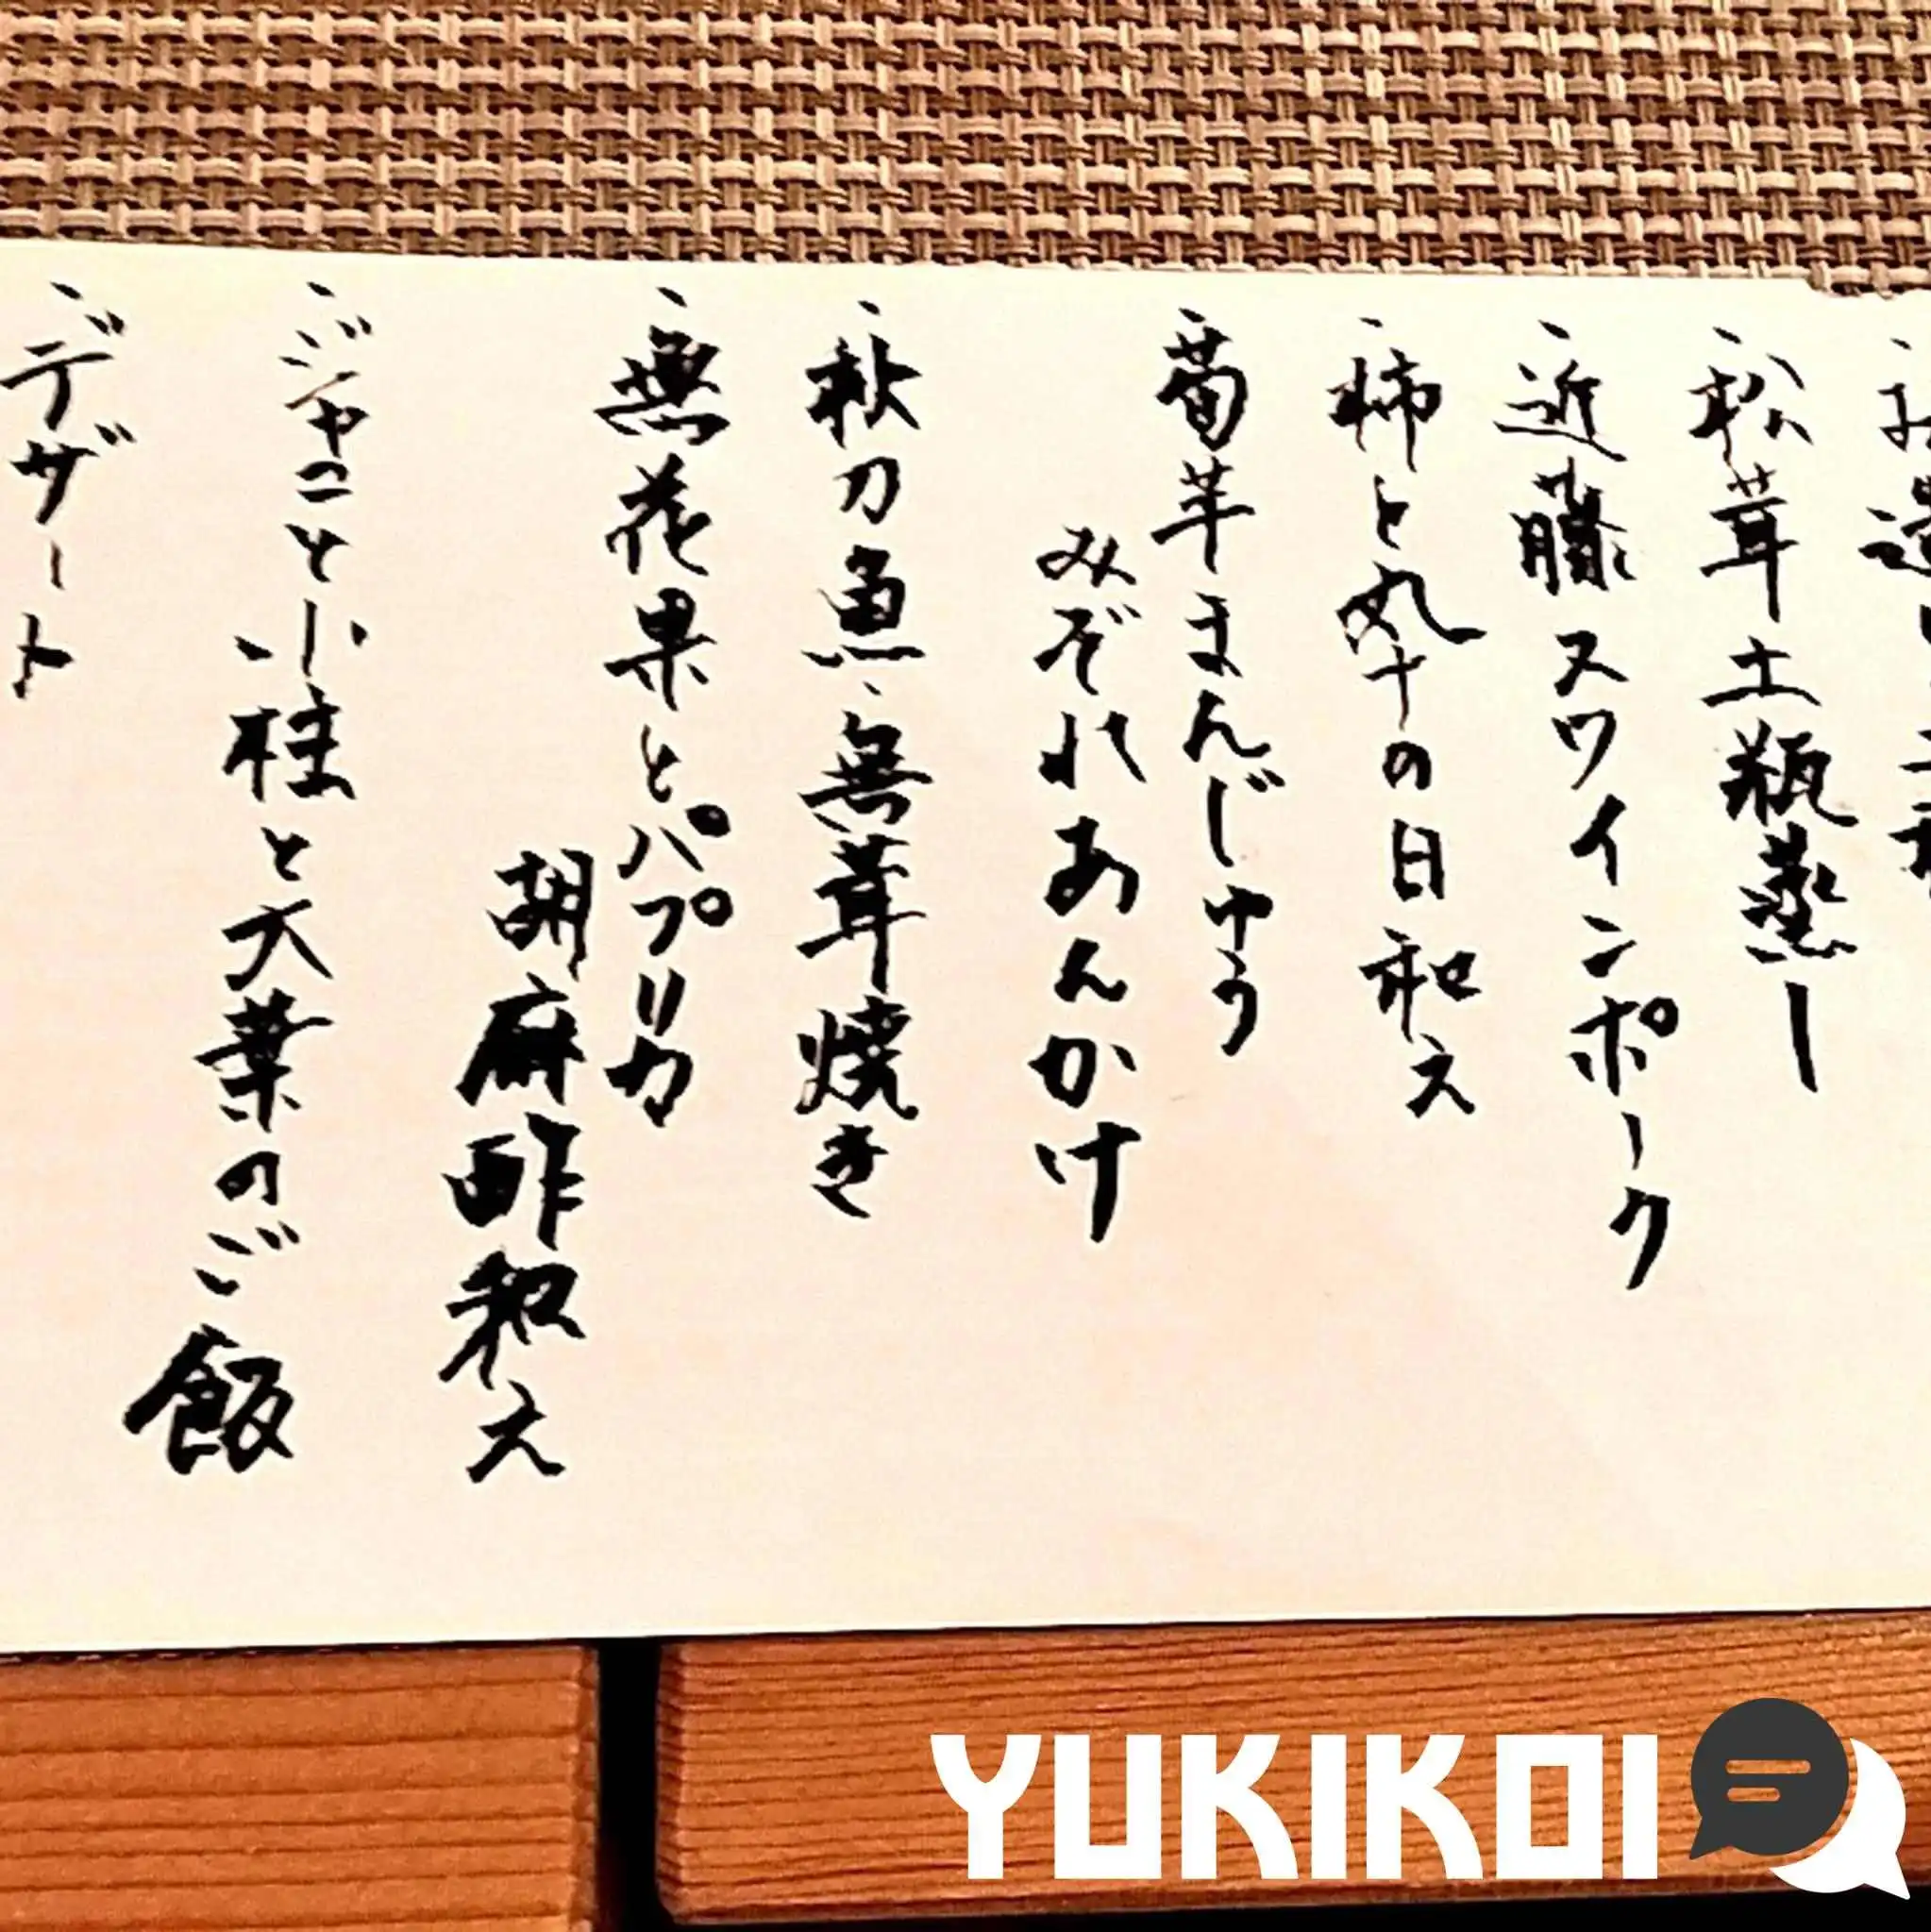 、お造り三種
、松茸土瓶蒸し
、近藤スワインポーク
、柿と
の白和え
、菊芋まんじゅう
みぞれあんかけ
、秋刀魚、舞茸焼き
、無花果とパプリカ
胡麻酢和え
、ジャコと小柱と大葉のご飯
、デザート
YUKIKOI